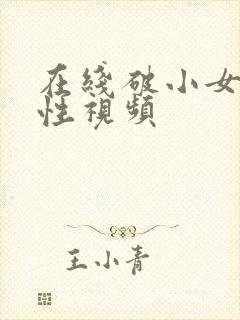 在綫破小女
性視頻
王小青